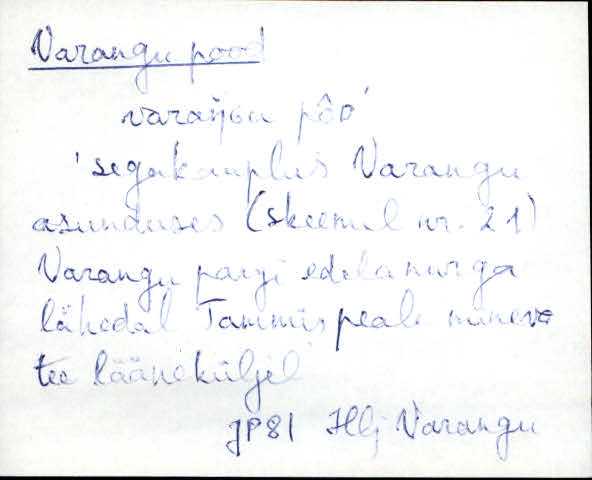 Varangu pood
varaŋGu pôo'
'segakauplus Varangu
asunduses (skeemil nr. 21)
Varangu pargi edelanurga
lähedal Tammispeale mineva
tee lääneküljel'
JP81 Hlj Varangu